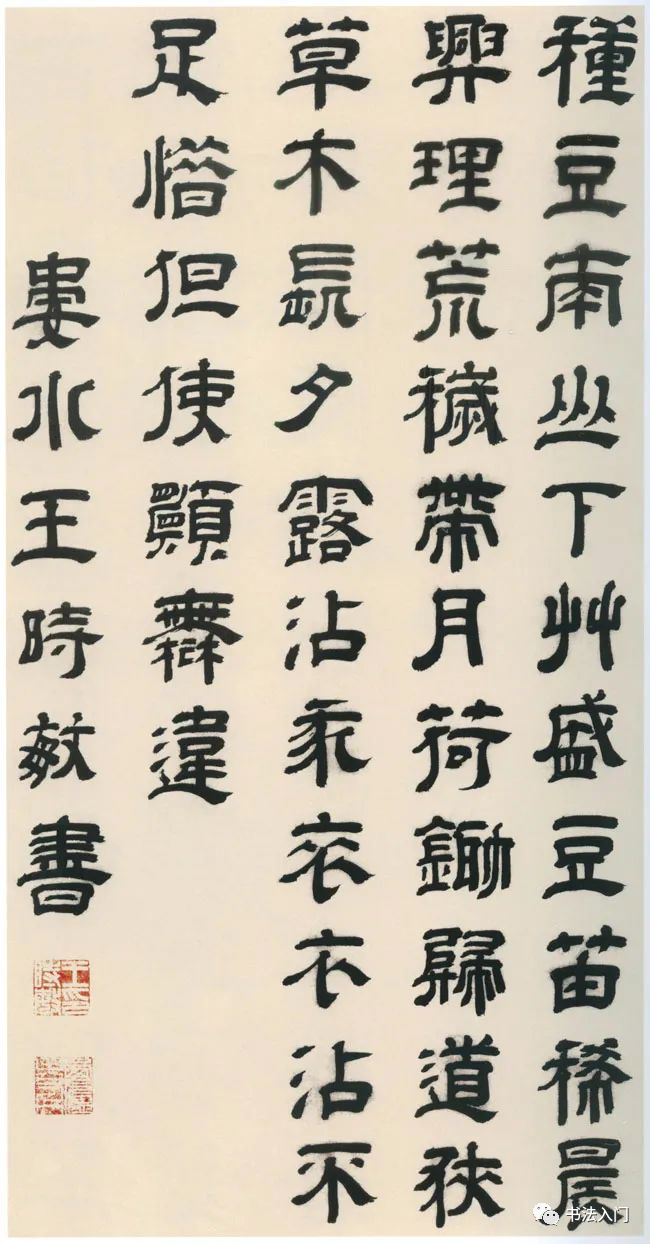 種豆南山下艸盛豆苗稀晨
興理荒穢帶月荷鋤歸道狹
草木長夕露沾我衣衣沾不
足惜但使願無違
婁水王時敏書
书法入门